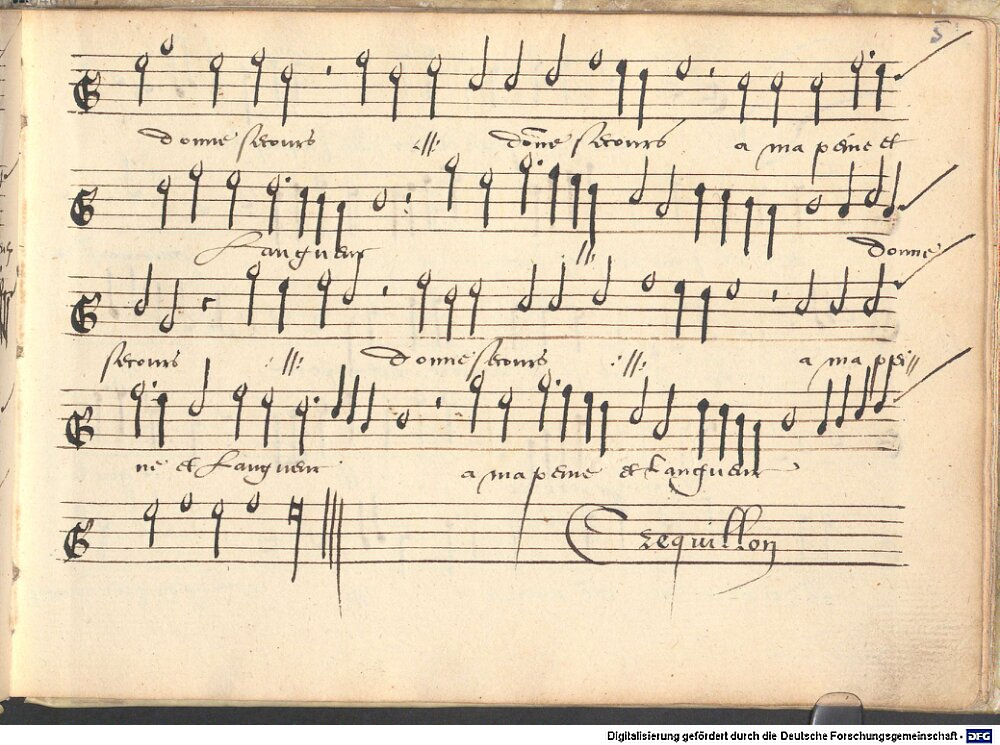 5
donne secours //: don̄e secours a ma peine et
Langueur // donne
secours //: donne secours :// a ma pei//
ne et Langueur a ma peine et Langueur
Crequillon
Digitalisierung gefördert durch die Deutsche Forschungsgemeinschaft - DFG